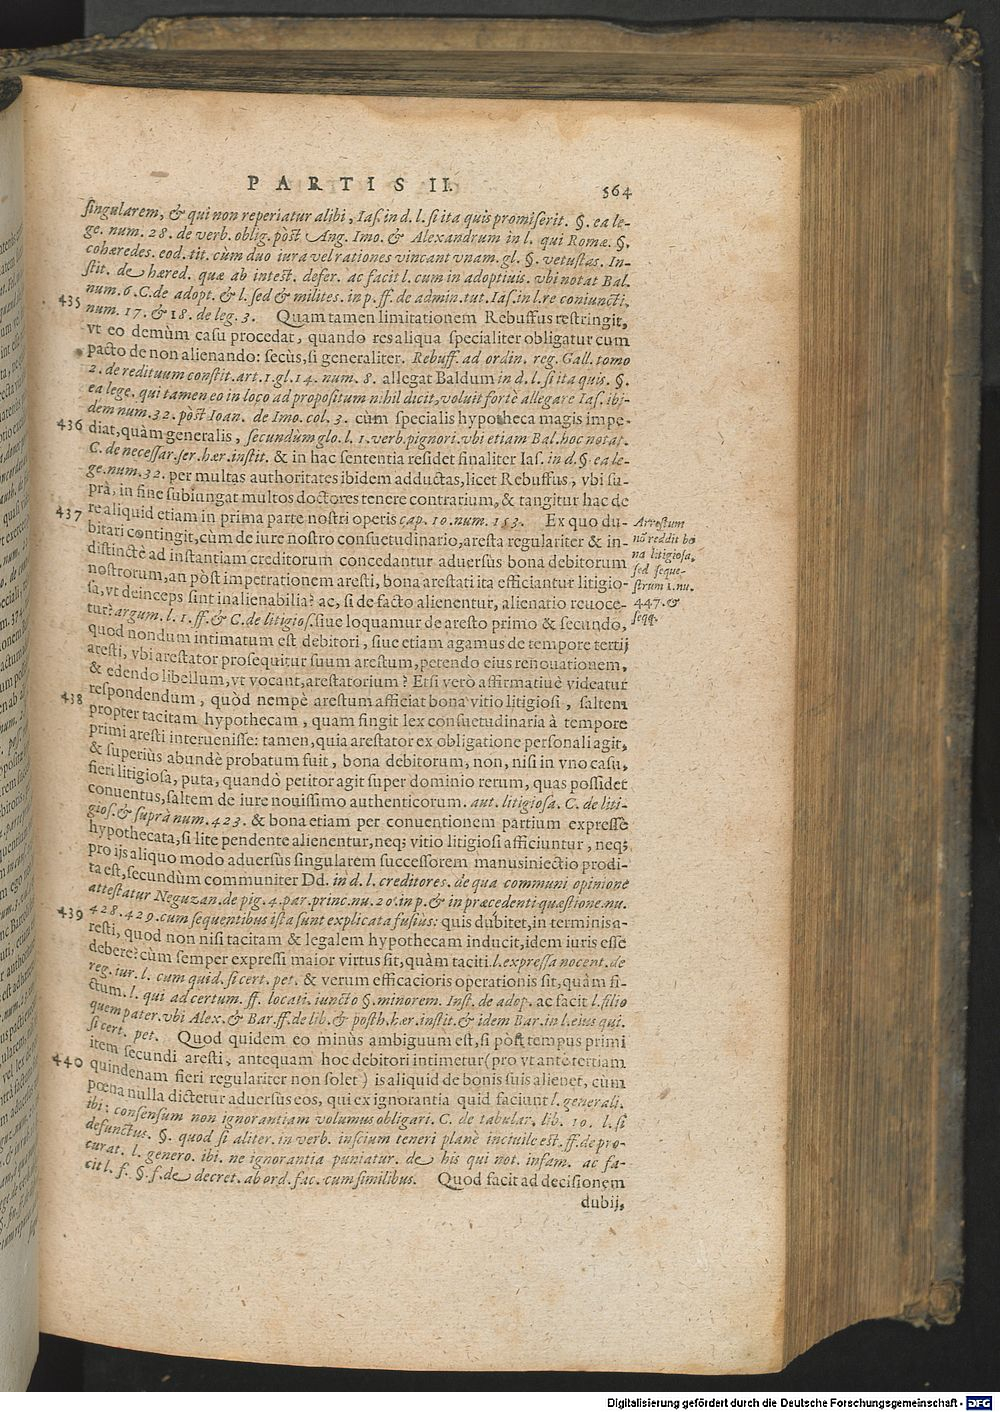 PARTIS II. 564
singularem, & qui non reperiatur alibi, Ias. in d. l. si ita quis promiserit. §. ea le-
ge. num. 28. de verb. oblig. pòst Ang. Imo. & Alexandrum in l. qui Romæ. §.
cohæredes. eod. tit. cùm duo iura vel rationes vincant vnam. gl. §. vetustas. In-
stit. de hæred. quæ ab intest. defer. ac facit l. cum in adoptiuis. vbi notat Bal.
num. 6. C. de adopt. & l. sed & milites. in p. ff. de admin. tut. Ias. in l. re coniuncti,
435 num. 17. & 18. de leg. 3. Quam tamen limitationem Rebuffus restringit,
vt eo demùm casu procedat, quando res aliqua specialiter obligatur cum
pacto de non alienando: secùs, si generaliter. Rebuff. ad ordin. reg. Gall. tomo
2. de redituum constit. art. 1. gl. 14. num. 8. allegat Baldum in d. l. si ita quis. §.
ea lege. qui tamen eo in loco ad propositum nihil dicit, voluit fortè allegare Ias. ibi-
dem num. 32. pòst Ioan. de Imo. col. 3. cùm specialis hypotheca magis impe-
436 diat, quàm generalis, secundùm glo. l. 1. verb. pignori. vbi etiam Bal. hoc notat.
C. de necessar. ser. hær. instit. & in hac sententia residet finaliter Ias. in d. §. ea le-
ge. num. 32. per multas authoritates ibidem adductas, licet Rebuffus, vbi su-
prà, in fine subiungat multos doctores tenere contrarium, & tangitur hac de
437 re aliquid etiam in prima parte nostri operis cap. 10. num. 153. Ex quo du-
bitari contingit, cùm de iure nostro consuetudinario, aresta regulariter & in-
distinctè ad instantiam creditorum concedantur aduersùs bona debitorum
nostrorum, an pòst impetrationem aresti, bona arestati ita efficiantur litigio-
sa, vt deinceps sint inalienabilia? ac, si de facto alienentur, alienatio reuoce-
tur? argum. l. 1. ff. & C. de litigios. siue loquamur de aresto primo & secundo,
quod nondum intimatum est debitori, siue etiam agamus de tempore tertij
aresti, vbi arestator prosequitur suum arestum, petendo eius renouationem,
& edendo libellum, vt vocant, arestatorium? Etsi verò affirmatiuè videatur
438 respondendum, quòd nempè arestum afficiat bona vitio litigiosi, saltem
propter tacitam hypothecam, quam fingit lex consuetudinaria à tempore
primi aresti interuenisse: tamen, quia arestator ex obligatione personali agit,
& superiùs abundè probatum fuit, bona debitorum, non, nisi in vno casu,
fieri litigiosa, puta, quandò petitor agit super dominio rerum, quas possidet
conuentus, saltem de iure nouissimo authenticorum. aut. litigiosa. C. de liti-
gios. & suprà num. 423. & bona etiam per conuentionem partium expressè
hypothecata, si lite pendente alienentur, neq; vitio litigiosi afficiuntur, neq;
pro ijs aliquo modo aduersùs singularem successorem manus iniectio prodi-
ta est, secundùm communiter Dd. in d. l. creditores. de qua communi opinione
attestatur Neguzan. de pig. 4. par. princ. nu. 20. in p. & in præcedenti quæstione. nu.
439 428. 429. cum sequentibus ista sunt explicata fusiùs: quis dubitet, in terminis a-
resti, quod non nisi tacitam & legalem hypothecam inducit, idem iuris esse
debere? cùm semper expressi maior virtus sit, quàm taciti. l. expressa nocent. de
reg. iur. l. cum quid. si cert. pet. & verum efficacioris operationis sit, quàm fi-
ctum. l. qui ad certum. ff. locati. iuncto §. minorem. Inst. de adop. ac facit l. filio
quem pater. vbi Alex. & Bar. ff. de lib. & posth. hær. instit. & idem Bar. in l. eius qui.
si cert. pet. Quod quidem eo minùs ambiguum est, si pòst tempus primi
item secundi aresti, antequam hoc debitori intimetur (pro vt antè tertiam
440 quindenam fieri regulariter non solet) is aliquid de bonis suis alienet, cùm
pœna nulla dictetur aduersùs eos, qui ex ignorantia quid faciunt l. generali.
ibi: consensum non ignorantiam volumus obligari. C. de tabular. lib. 10. l. si
defunctus. §. quod si aliter. in verb. inscium teneri planè inciuile est. ff. de pro-
curat. l. genero. ibi. ne ignorantia puniatur. de his qui not. infam. ac fa-
cit l. f. §. f. de decret. ab ord. fac. cum similibus. Quod facit ad decisionem
dubij,
Arrestum
nō reddit bo
na litigiosa,
sed seque-
strum 1. nu.
447. &
seqq.
Digitalisierung gefördert durch die Deutsche Forschungsgemeinschaft - DFG